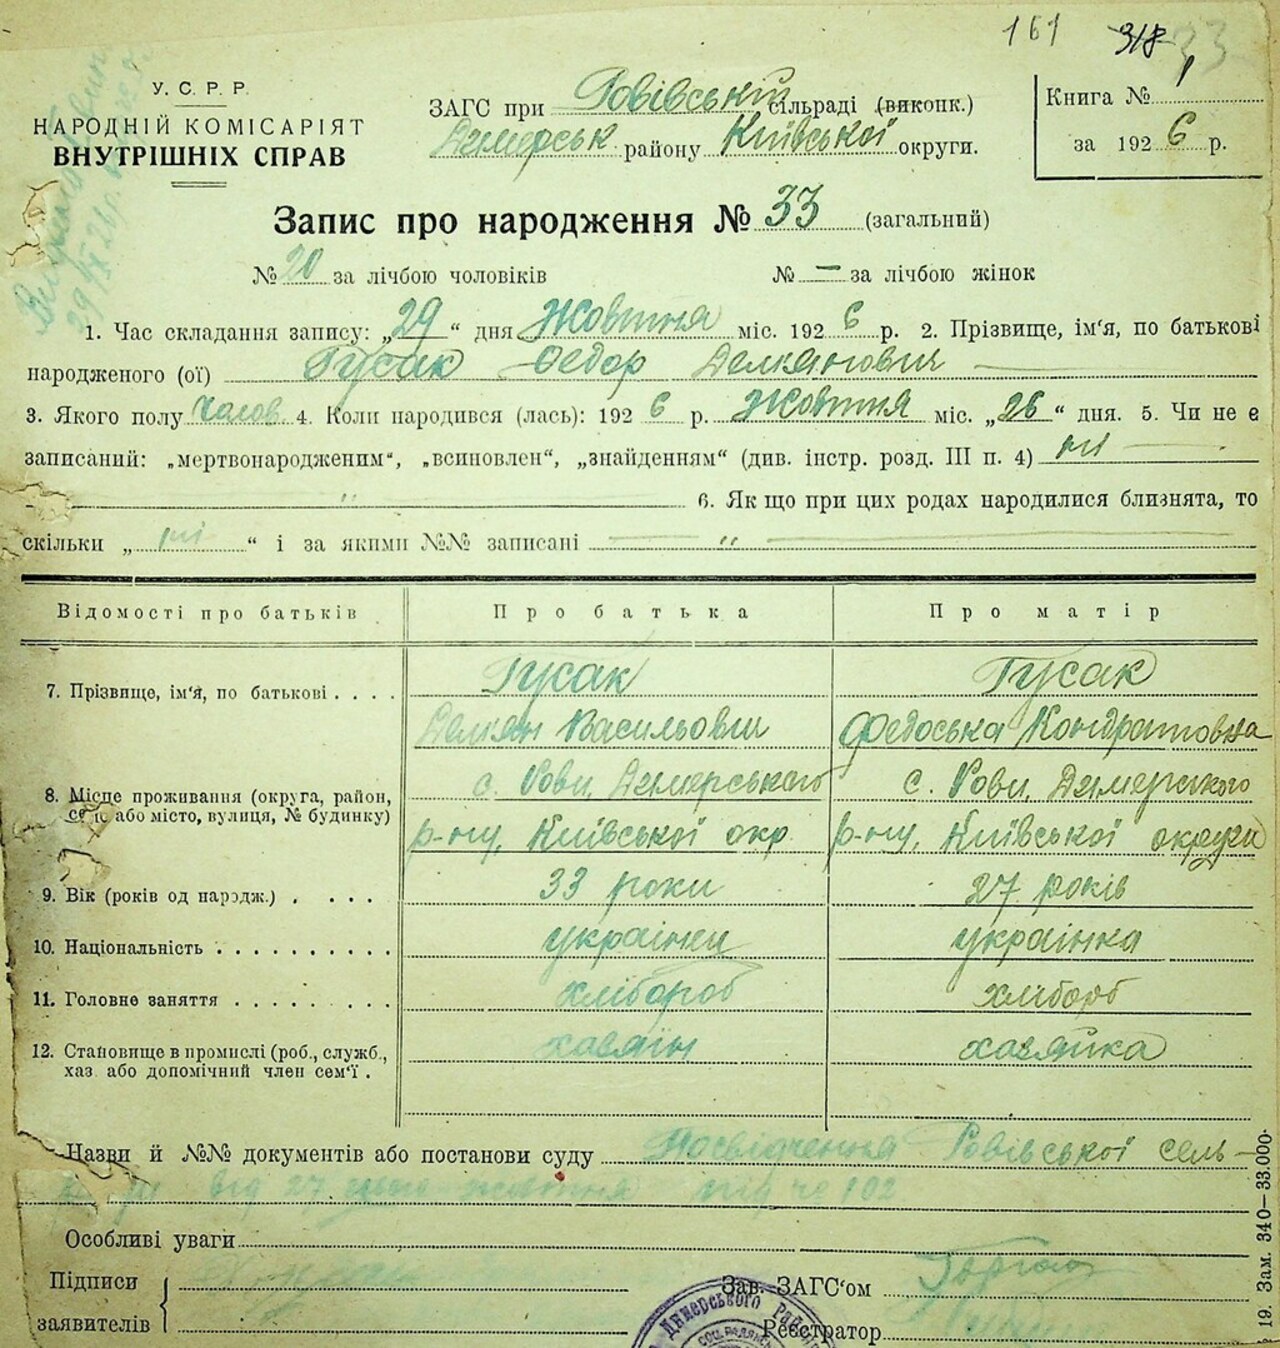 161 318 33
У. С. Р. Р.
НАРОДНІЙ КОМІСАРІЯТ
ВНУТРІШНІХ СПРАВ
ЗАГС при Ровівській сільраді (виконк.)
Димерськ району Київської округи.
Книга №
за 1926 р.
Запис про народження № 33 (загальний)
№ 20 за лічбою чоловіків № — за лічбою жінок
1. Час складання запису: „29“ дня Жовтня міс. 1926 р. 2. Прізвище, ім‘я, по батькові
народженого (ої) Гусак Федор Демянович
3. Якого полу Чолов. 4. Коли народився (лась): 1926 р. Жовтня міс. „26“ дня. 5. Чи не є
записаний: „мертвонародженим“, „всиновлен“, „знайденням“ (див. інстр. розд. III п. 4) ні
" 6. Як що при цих родах народилися близнята, то
скільки „ ні “ і за якими №№ записані "
Відомості про батьків Про батька Про матір
7. Прізвище, ім‘я, по батькові . . . . Гусак Гусак
Демян Васильович Федоська Кондратовна
8. Місце проживання (округа, район, с. Рови, Димерського с. Рови, Димерського
село або місто, вулиця, № будинку) р-ну, Київської окр. р-ну, Київської округи
9. Вік (років од народж.) . . . . 33 роки 27 років
10. Національність . . . . . . . . . . українец українка
11. Головне заняття . . . . . . . . . хлібороб хлібороб
12. Становище в промислі (роб., служб., хазяїн хазяйка
хаз. або допомічний член сем‘ї .
Назви й №№ документів або постанови суду Посвідчення Ровівської сель-
від 27 жовтня під ч. 102
Особливі уваги
Підписи
заявителів
Зав. ЗАГС‘ом
Реєстратор
Димерського Район
19. Зам. 340—33.000.